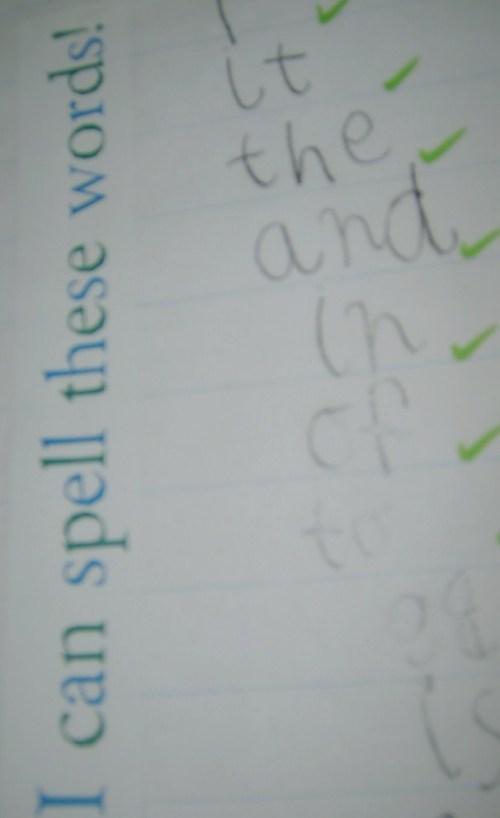 I can spell these words!
it
the
and
in
of
to
is